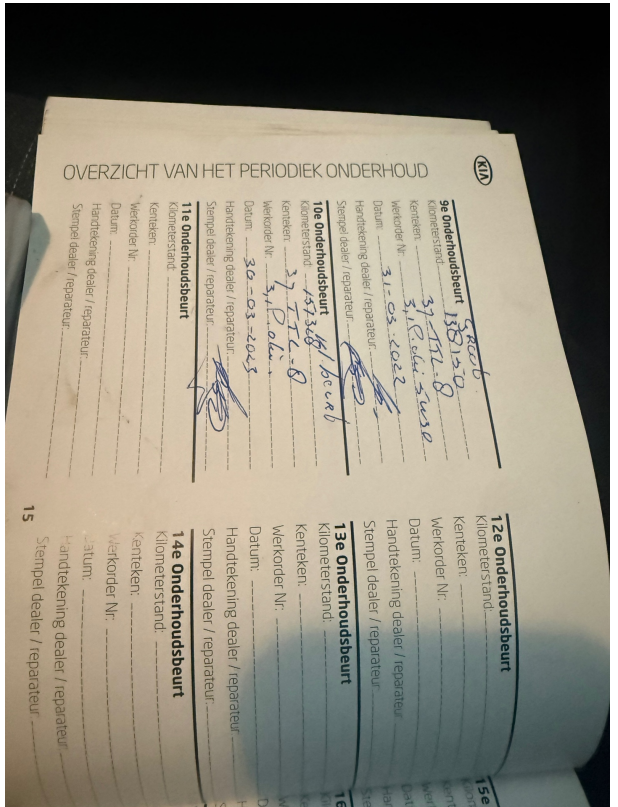 KIA
OVERZICHT VAN HET PERIODIEK ONDERHOUD
9e Onderhoudsbeurt
Kilometerstand: 138150
Kenteken: 37-TTL-8
Werkorder Nr:
Datum: 31-03-2022
Handtekening dealer / reparateur:
Stempel dealer / reparateur:
10e Onderhoudsbeurt
Kilometerstand: beurt
Kenteken: 37-TTL-8
Werkorder Nr:
Datum: 30-03-2023
Handtekening dealer / reparateur:
Stempel dealer / reparateur:
11e Onderhoudsbeurt
Kilometerstand:
Kenteken:
Werkorder Nr:
Datum:
Handtekening dealer / reparateur:
Stempel dealer / reparateur:
12e Onderhoudsbeurt
Kilometerstand:
Kenteken:
Werkorder Nr:
Datum:
Handtekening dealer / reparateur:
Stempel dealer / reparateur:
13e Onderhoudsbeurt
Kilometerstand:
Kenteken:
Werkorder Nr:
Datum:
Handtekening dealer / reparateur:
Stempel dealer / reparateur:
14e Onderhoudsbeurt
Kilometerstand:
Kenteken:
Werkorder Nr:
Datum:
Handtekening dealer / reparateur:
Stempel dealer / reparateur:
15
15e
16